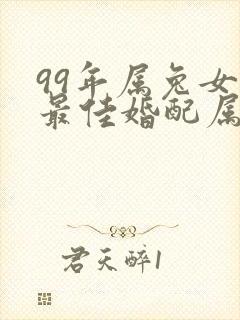 99年属兔女
最佳婚配属
君天醉1